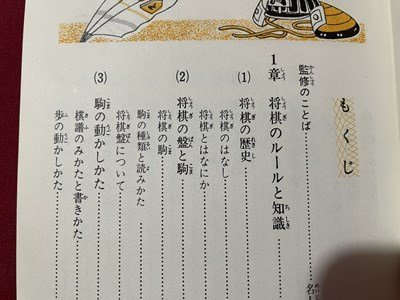 もくじ
監修のことば
名
1章 将棋のルールと知識
(1) 将棋の歴史
将棋のはなし
将棋とはなにか
(2) 将棋の盤と駒
将棋の駒
駒の種類と読みかた
将棋盤について
(3) 駒の動かしかた
棋譜のみかたと書きかた
歩の動かしかた